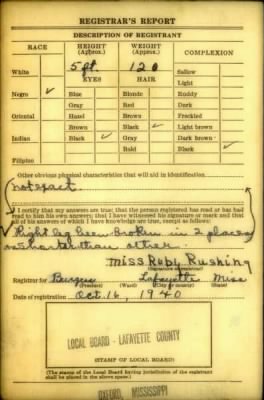 REGISTRAR'S REPORT
DESCRIPTION OF REGISTRANT
RACE HEIGHT (Approx.) WEIGHT (Approx.) COMPLEXION
White 5 ft. 120 Sallow
EYES HAIR Light
Negro ✓ Blue Blonde Ruddy
Gray Red Dark
Oriental Hazel Brown Freckled
Brown Black ✓ Light brown
Indian Black ✓ Gray Dark brown
Bald Black ✓
Filipino
Other obvious physical characteristics that will aid in identification
not exact.
I certify that my answers are true; that the person registered has read or has had
read to him his own answers; that I have witnessed his signature or mark and that
all of his answers of which I have knowledge are true, except as follows:
Right leg been broken in 2 places
shorter than other.
Miss Roby Rushing
(Signature of registrar)
Registrar for Burgess Lafayette Miss
(Precinct) (Ward) (City or county) (State)
Date of registration Oct. 16, 1940
LOCAL BOARD - LAFAYETTE COUNTY
(STAMP OF LOCAL BOARD)
(The stamp of the Local Board having jurisdiction of the registrant
shall be placed in the above space.)
OXFORD, MISSISSIPPI